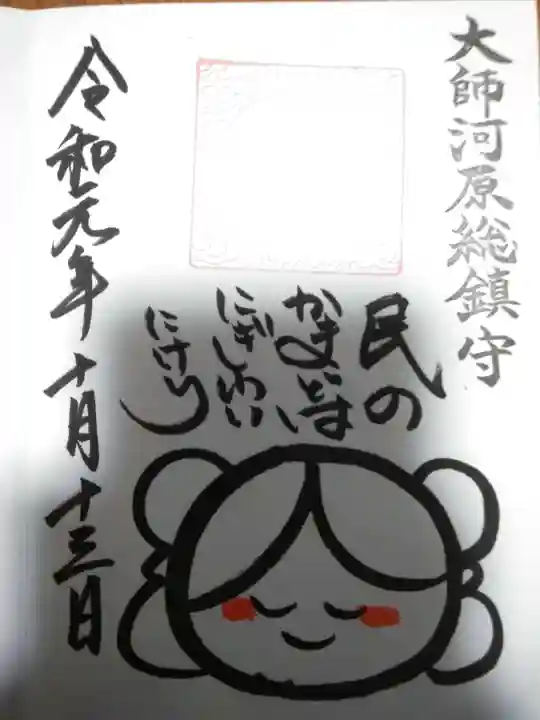 大師河原総鎮守
民の
かまどは
にぎわい
にけり
令和元年十月十三日